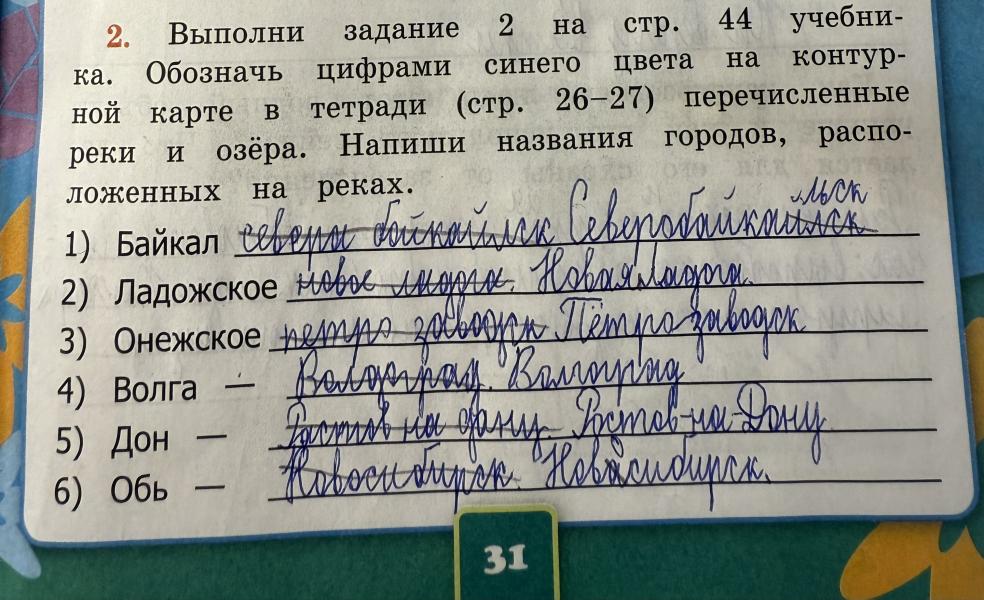 2. Выполни задание 2 на стр. 44 учебни-
ка. Обозначь цифрами синего цвета на контур-
ной карте в тетради (стр. 26–27) перечисленные
реки и озёра. Напиши названия городов, распо-
ложенных на реках.
льск
1) Байкал севера байкайлск Северобайкайлск
2) Ладожское новое ладога. Новая Ладога.
3) Онежское петро заводск Пётрозаводск
4) Волга — Волдоград. Волгоград
5) Дон — Растов на дону. Ростов-на-Дону
6) Обь — Новосибирск. Новосибирск.
31